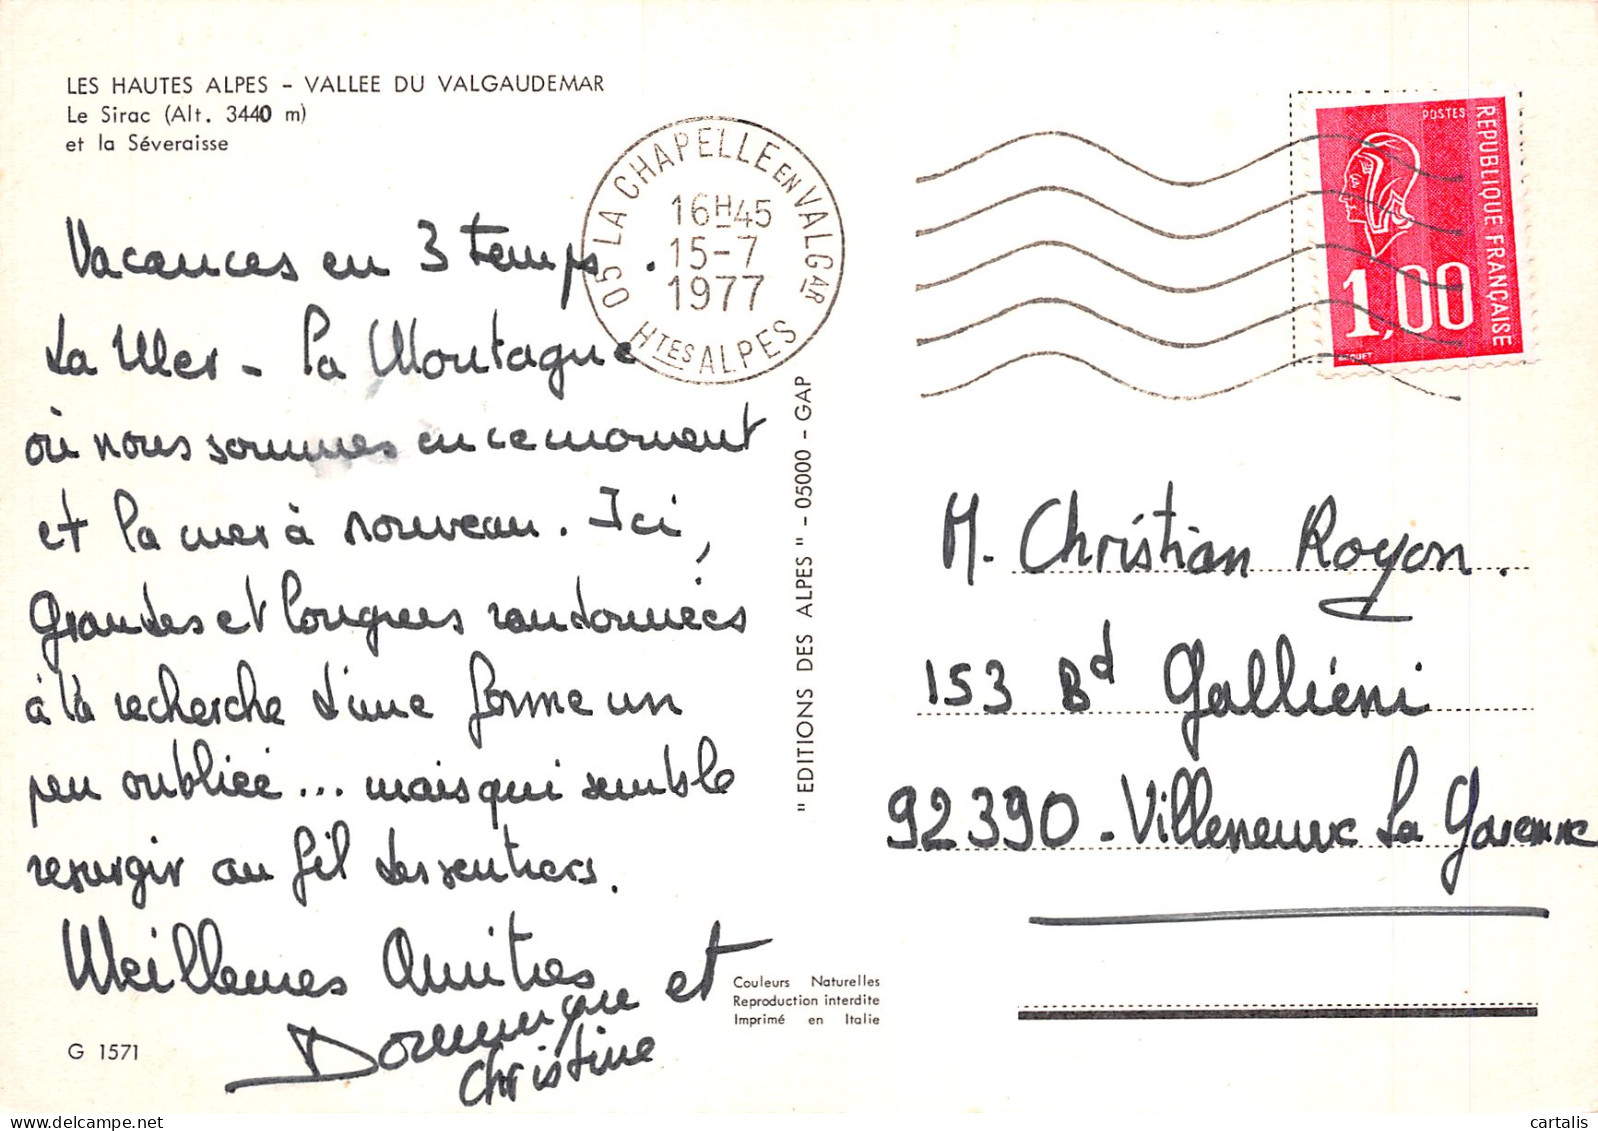 LES HAUTES ALPES – VALLEE DU VALGAUDEMAR
Le Sirac (Alt. 3440 m)
et la Séveraisse
Vacances en 3 temps.
La Mer - la Montagne
où nous sommes en ce moment
et la mer à nouveau. Ici,
grandes et longues randonnées
à la recherche d'une forme un
peu oubliée ... mais qui semble
resurgir au fil des sentiers.
Meilleures Amitiés
Dominique et
Christine
G 1571
05 LA CHAPELLE EN VALGAR
16H45
15-7
1977
HTES ALPES
" EDITIONS DES ALPES " - 05000 - GAP
Couleurs Naturelles
Reproduction interdite
Imprimé en Italie
POSTES
REPUBLIQUE FRANÇAISE
1,00
BEQUET
M. Christian Royon.
153 Bd Galliéni
92390 - Villeneuve La Garenne
cartalis